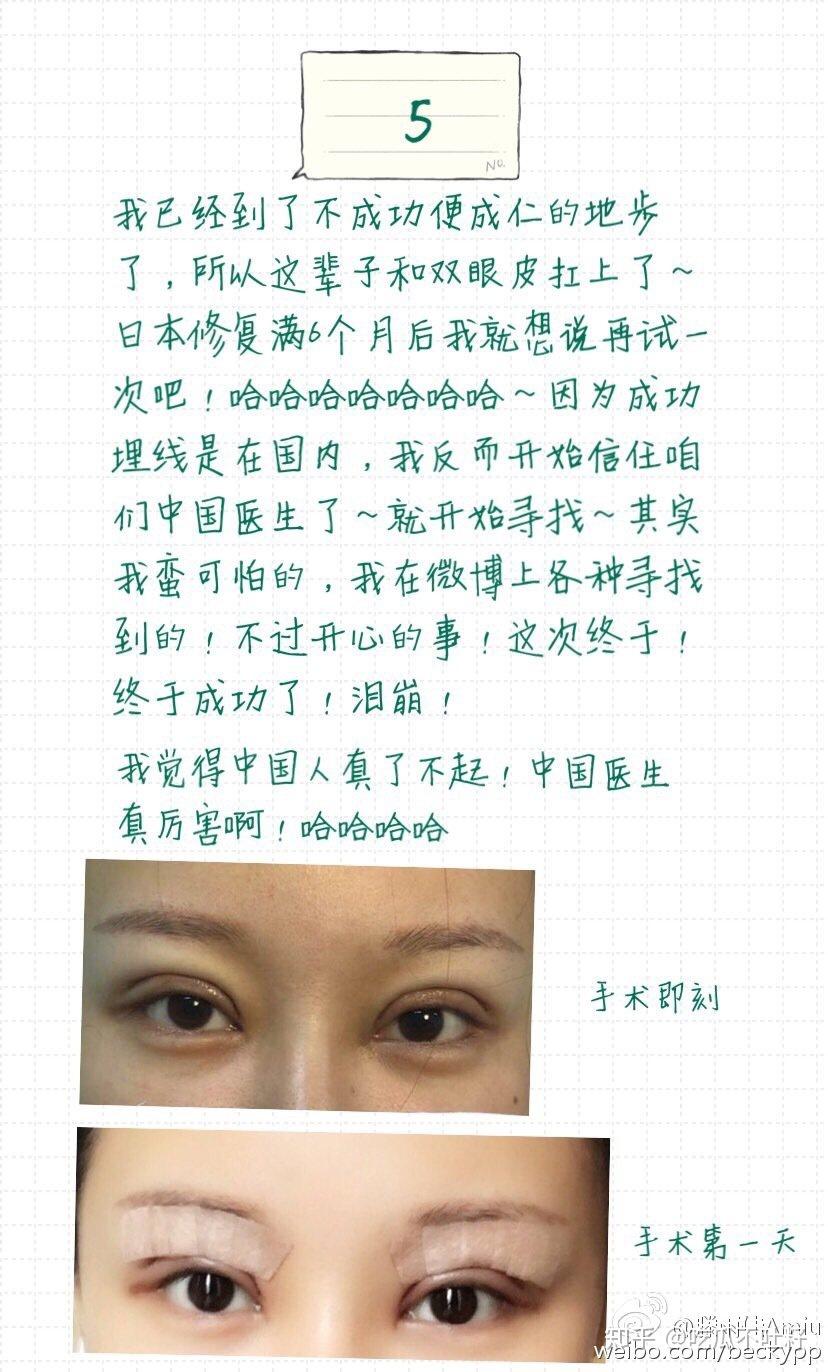 5
No.
我已经到了不成功便成仁的地步
了,所以这辈子和双眼皮扛上了~
日本修复满6个月后我就想说再试一
次吧!哈哈哈哈哈哈哈~因为成功
埋线是在国内,我反而开始信任咱
们中国医生了~就开始寻找~其实
我蛮可怕的,我在微博上各种寻找
到的!不过开心的事!这次终于!
终于成功了!泪崩!
我觉得中国人真了不起!中国医生
真厉害啊!哈哈哈哈
手术即刻
手术第一天
知乎 @吃瓜不吐籽
weibo.com/beckypp